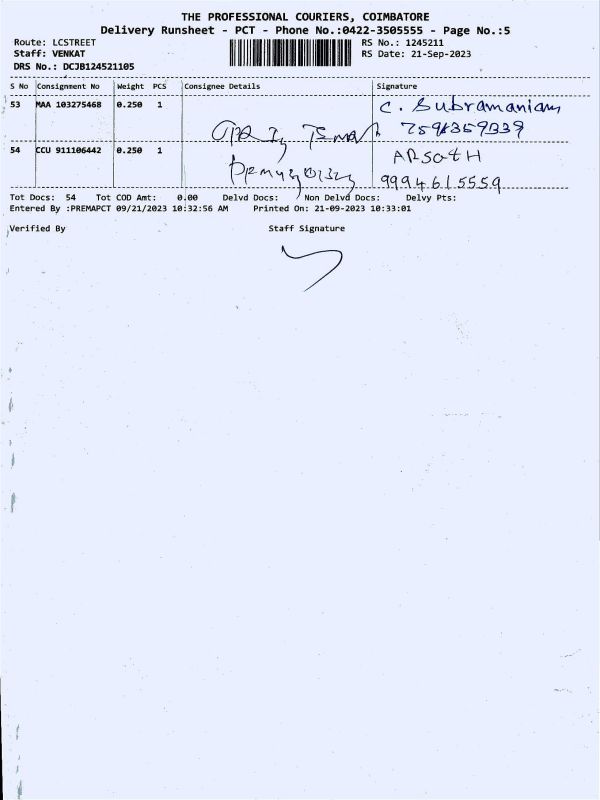 THE PROFESSIONAL COURIERS, COIMBATORE
Delivery Runsheet - PCT - Phone No.:0422-3505555 - Page No.:5
Route: LCSTREET RS No.: 1245211
Staff: VENKAT RS Date: 21-Sep-2023
DRS No.: DCJB124521105
S No Consignment No Weight PCS Consignee Details Signature
53 MAA 103275468 0.250 1 C. Subramaniam
54 CCU 911106442 0.250 1 ARSATH
9994615559
Tot Docs: 54 Tot COD Amt: 0.00 Delvd Docs: Non Delvd Docs: Delvy Pts:
Entered By :PREMAPCT 09/21/2023 10:32:56 AM Printed On: 21-09-2023 10:33:01
Verified By Staff Signature